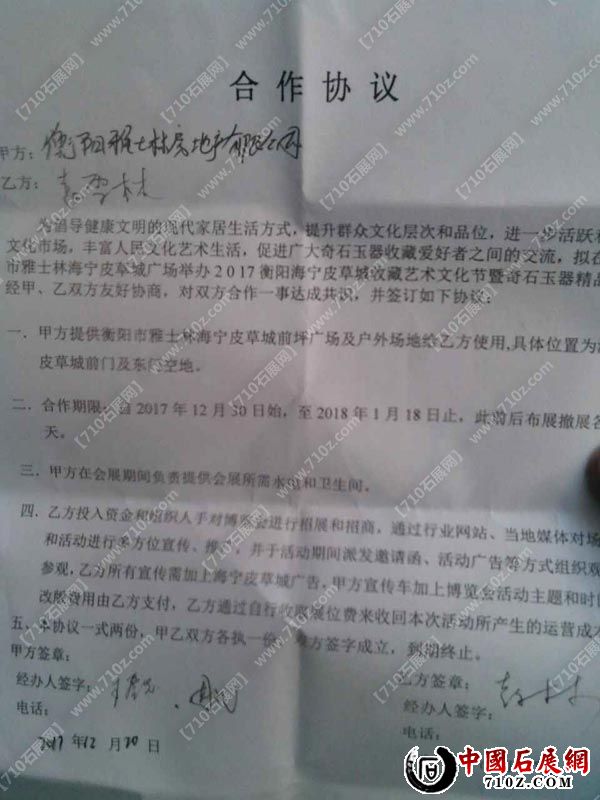 合作协议
甲方：衡阳雅士林房地产有限公司
乙方：
为倡导健康文明的现代家居生活方式，提升群众文化层次和品位，进一步活跃
文化市场，丰富人民文化艺术生活，促进广大奇石玉器收藏爱好者之间的交流，拟在
市雅士林海宁皮草城广场举办2017衡阳海宁皮草城收藏艺术文化节暨奇石玉器精品
经甲、乙双方友好协商，对双方合作一事达成共识，并签订如下协议：
一．甲方提供衡阳市雅士林海宁皮草城前坪广场及户外场地给乙方使用,具体位置为
皮草城前门及东门空地。
二．合作期限：自2017年12月30日始，至2018年1月18日止，此前后布展撤展各
天。
三．甲方在会展期间负责提供会展所需水电和卫生间。
四．乙方投入资金和组织人手对博览会进行招展和招商，通过行业网站、当地媒体对场
和活动进行多方位宣传、推广，并于活动期间派发邀请函、活动广告等方式组织观
参观,乙方所有宣传需加上海宁皮草城广告,甲方宣传车加上博览会活动主题和时
改版费用由乙方支付，乙方通过自行收取展位费来收回本次活动所产生的运营成
五、本协议一式两份，甲乙双方各执一份，双方签字成立，到期终止。
甲方签章：
乙方签章：
经办人签字：
经办人签字：
电话：
电话：
2017年12月20日
中國石展網
710Z.COM